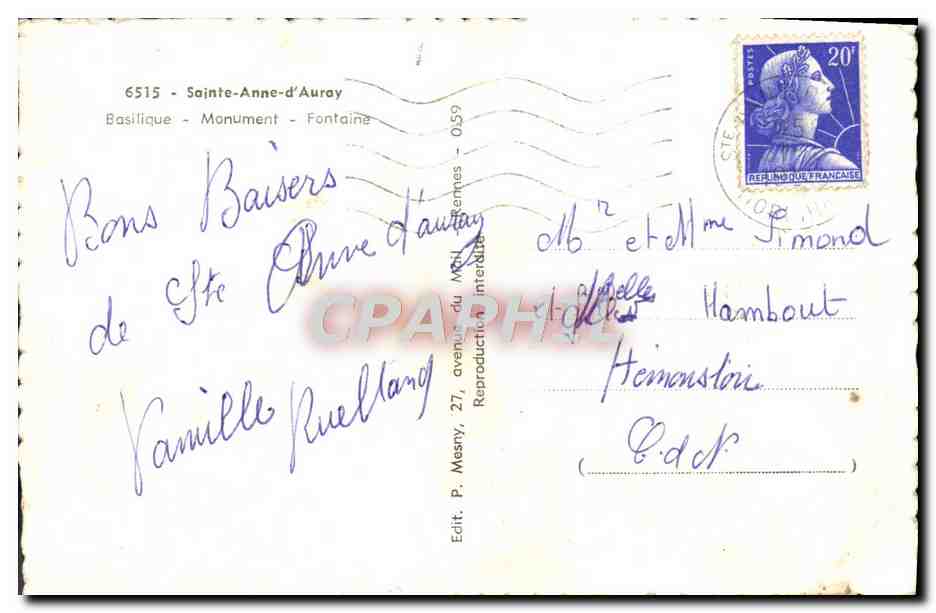 6515 - Sainte-Anne-d'Auray
Basilique - Monument - Fontaine
Bons Baisers
de Ste Anne d'auray
Famille Ruelland
Edit. P. Mesny, 27, avenue du Mail, Rennes - 0.59
Reproduction interdite
POSTES
20F
REPUBLIQUE FRANÇAISE
STE
Mr et Mme Simond
Hambout
Hémonstoir
C.d.N.
CPAPHIL